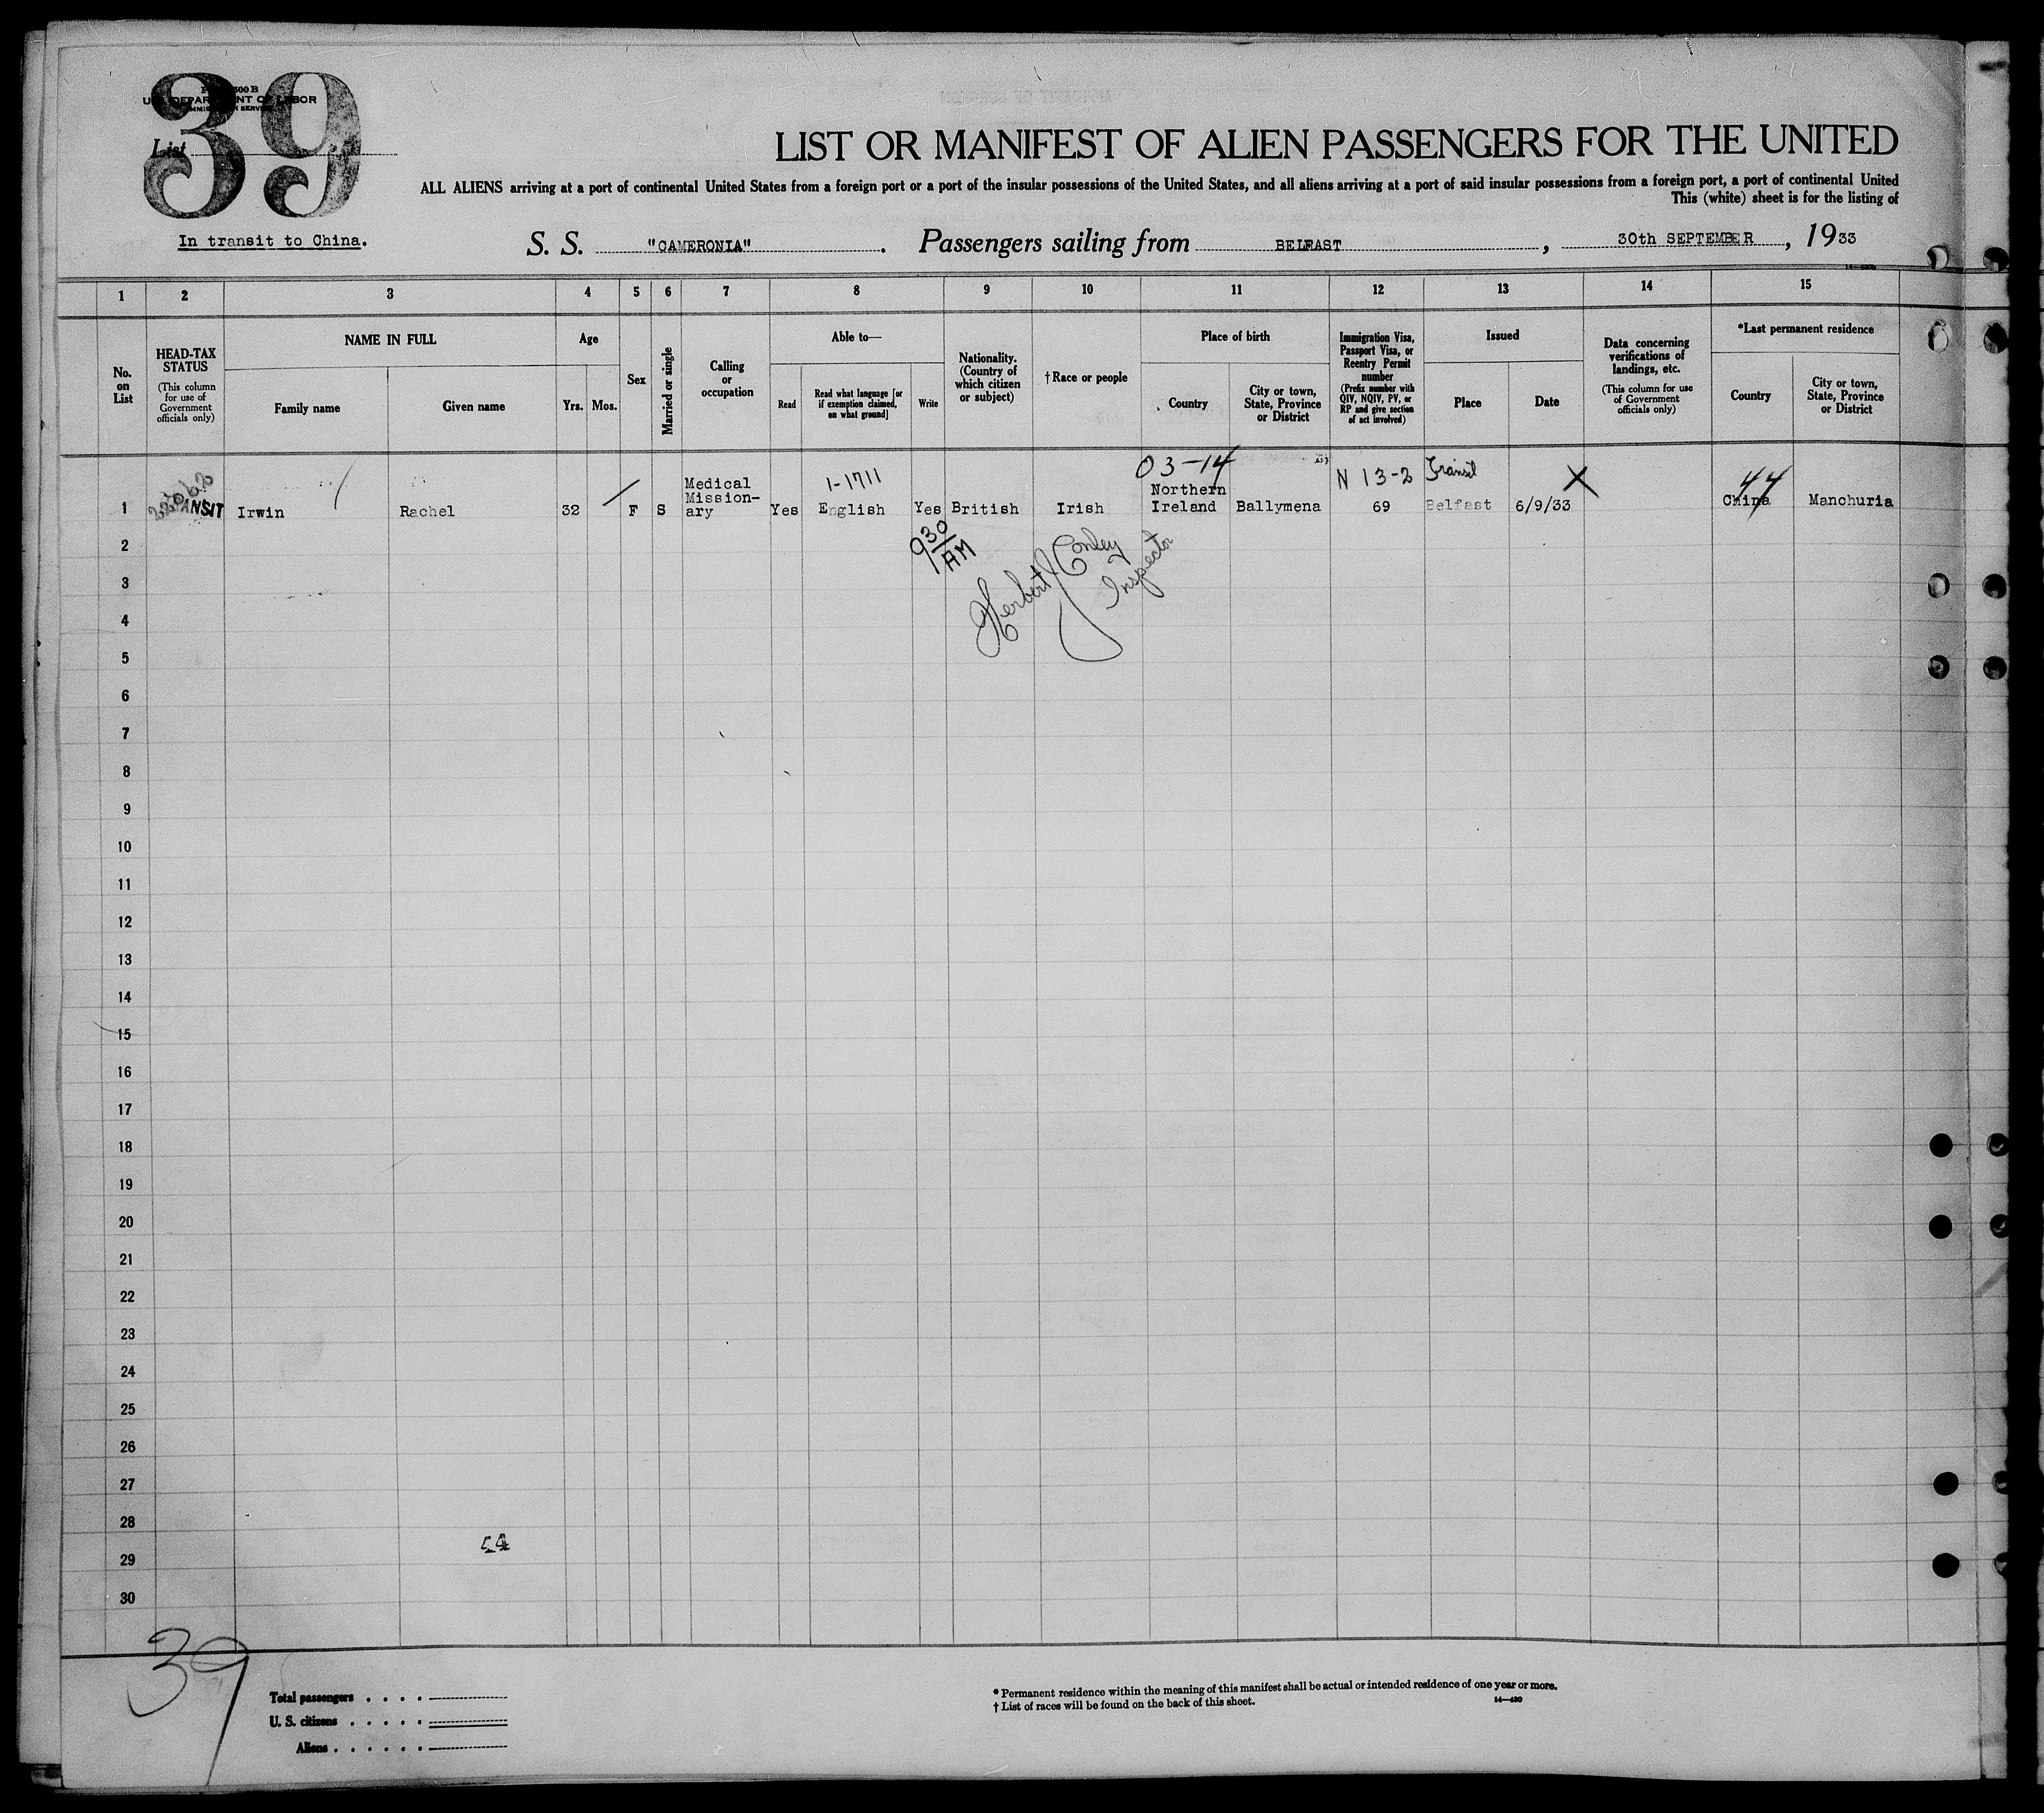 39
500 B
U.S. DEPARTMENT OF LABOR
IMMIGRATION SERVICE
List
LIST OR MANIFEST OF ALIEN PASSENGERS FOR THE UNITED
ALL ALIENS arriving at a port of continental United States from a foreign port or a port of the insular possessions of the United States, and all aliens arriving at a port of said insular possessions from a foreign port, a port of continental United
This (white) sheet is for the listing of
In transit to China.
S. S. "CAMERONIA". Passengers sailing from BELFAST, 30th SEPTEMBER, 1933
1 2 3 4 5 6 7 8 9 10 11 12 13 14 15
No. on List
HEAD-TAX STATUS
(This column for use of Government officials only)
NAME IN FULL
Family name
Given name
Age
Yrs. Mos.
Sex
Married or single
Calling or occupation
Able to—
Read
Read what language [or if exemption claimed, on what ground]
Write
Nationality. (Country of which citizen or subject)
†Race or people
Place of birth
Country
City or town, State, Province or District
Immigration Visa, Passport Visa, or Reentry Permit number
(Prefix number with QIV, NQIV, PV, or RP and give section of act involved)
Issued
Place
Date
Data concerning verifications of landings, etc.
(This column for use of Government officials only)
*Last permanent residence
Country
City or town, State, Province or District
03-14
1-1711
N 13-2 Transit
X
44
1 ANSIT Irwin Rachel 32 F S Medical Mission-ary Yes English Yes British Irish Northern Ireland Ballymena 69 Belfast 6/9/33 China Manchuria
930 AM
Herbert Conley
Inspector
2
3
4
5
6
7
8
9
10
11
12
13
14
15
16
17
18
19
20
21
22
23
24
25
26
27
28
29
30
39
Total passengers
U. S. citizens
Aliens
* Permanent residence within the meaning of this manifest shall be actual or intended residence of one year or more.
† List of races will be found on the back of this sheet.
14—430